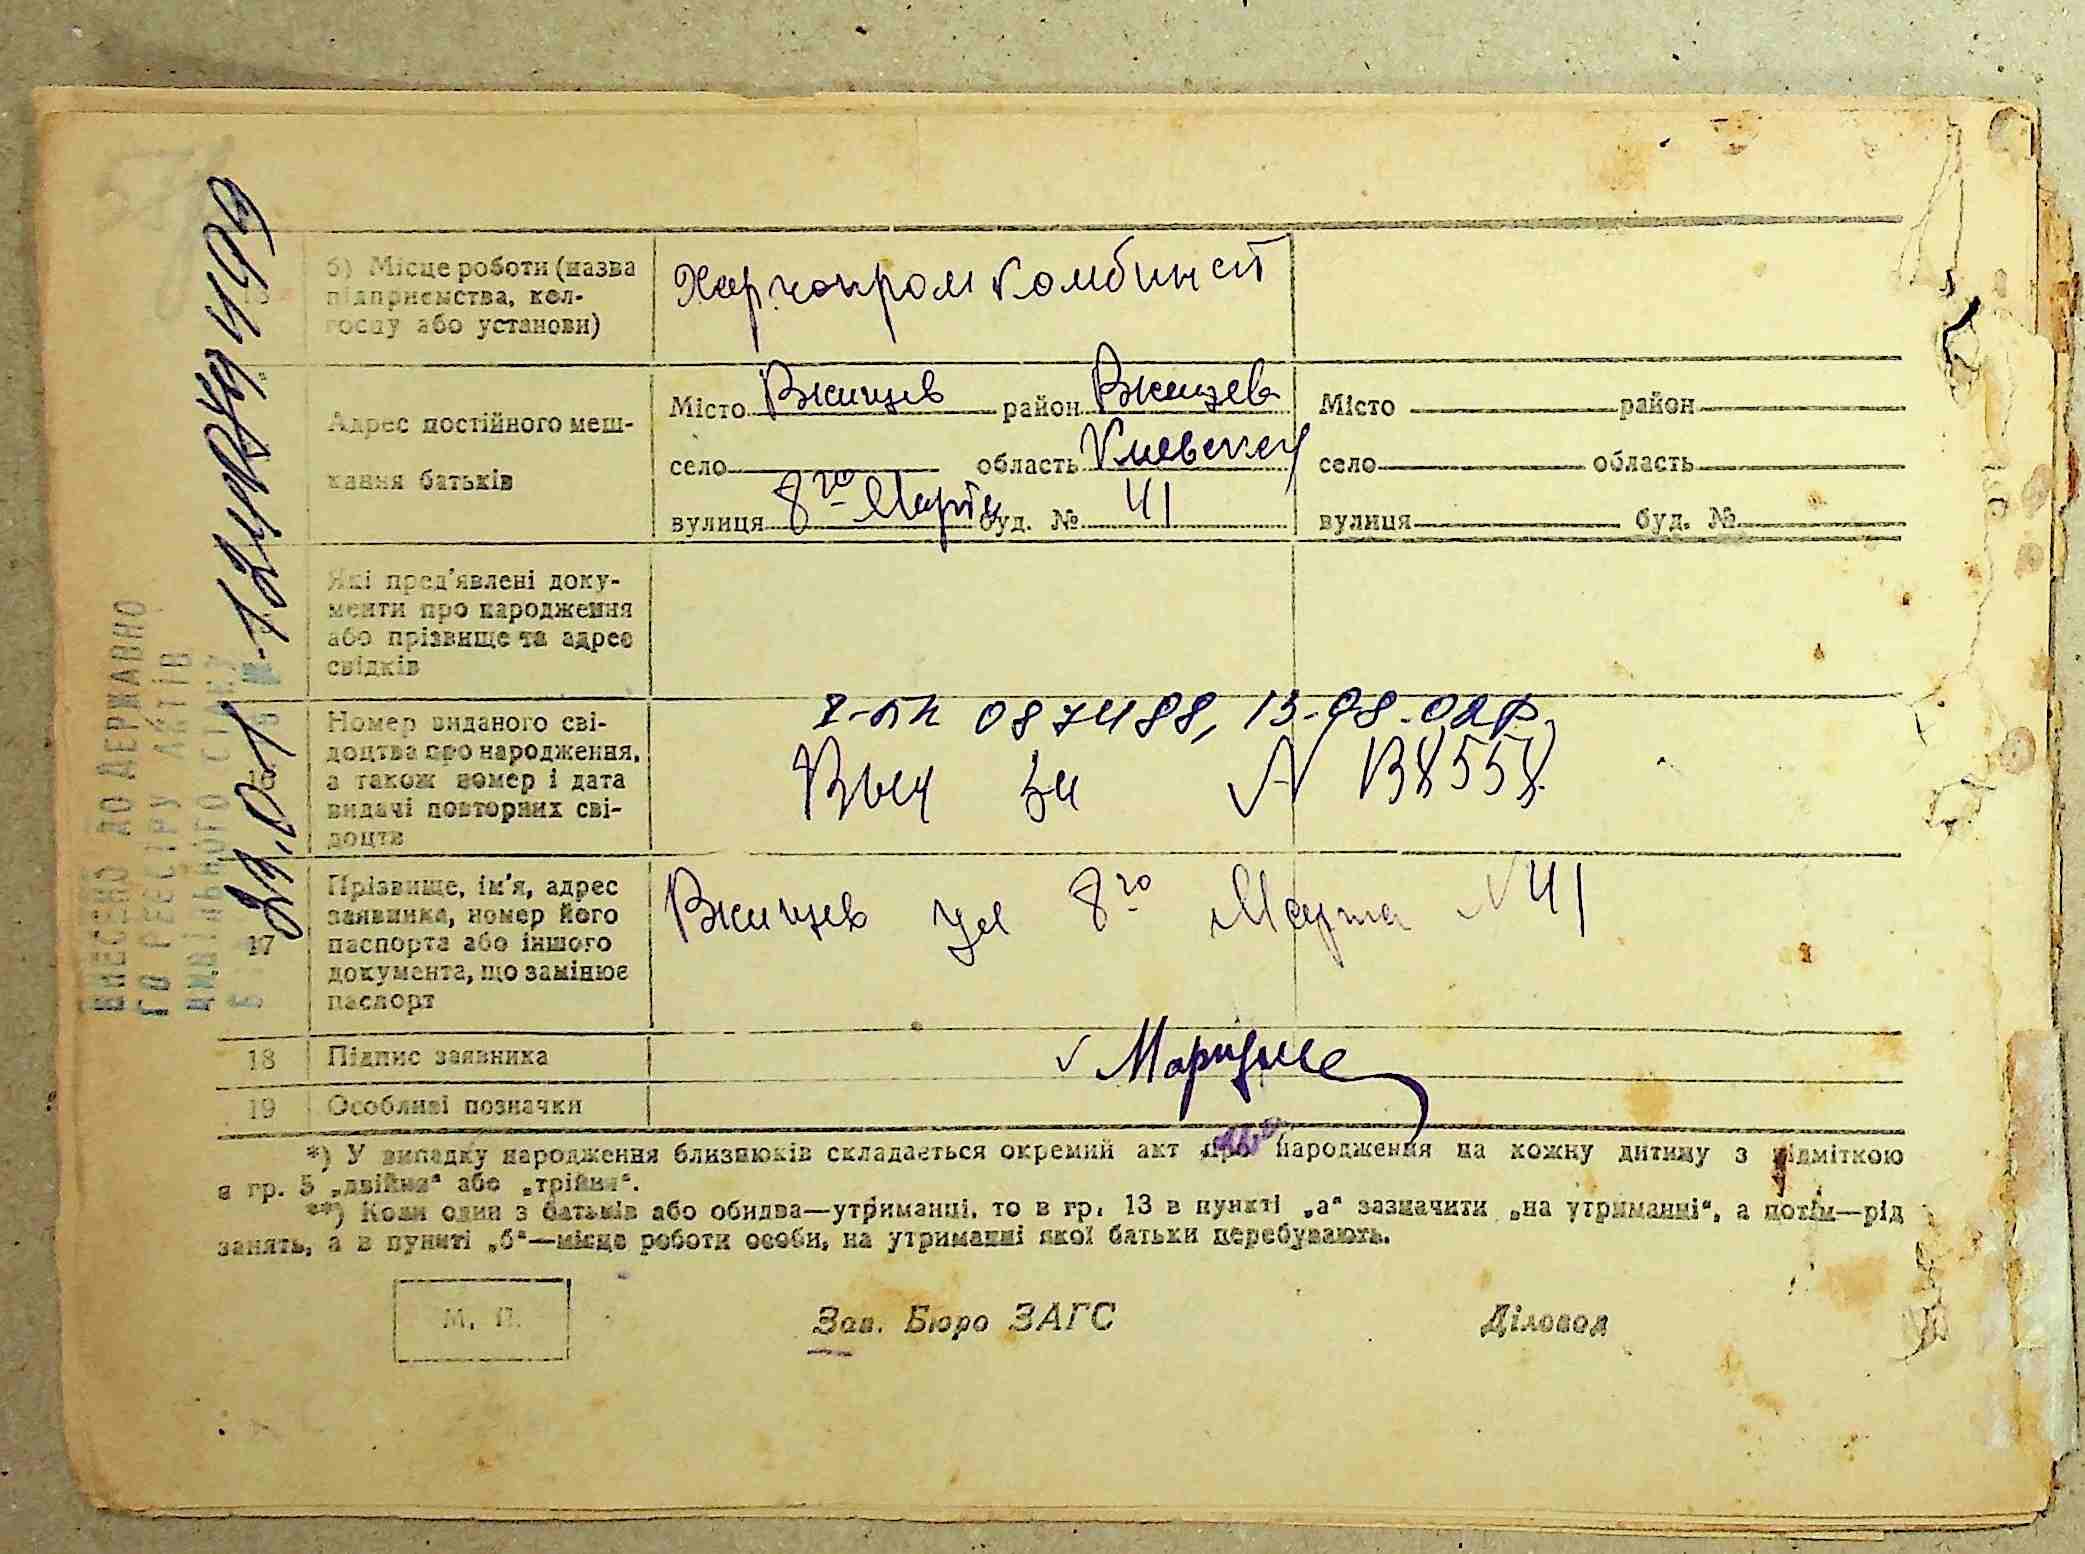 б) Місце роботи (назва
підприємства, кол-
госпу або установи)
Харчопромкомбинат
Адрес постійного меш-
кання батьків
Місто Ржищев район Ржищев
село область Киевская
вулиця 8го Марта буд. № 41
Місто район
село область
вулиця буд. №
Які пред'явлені доку-
менти про народження
або прізвище та адрес
свідків
Номер виданого сві-
доцтва про народження,
а також номер і дата
видачі повторних сві-
доцтв
087488, 13-08-02р.
17
Прізвище, ім'я, адрес
заявника, номер його
паспорта або іншого
документа, що замінює
паспорт
Ржищев ул 8го Марта № 41
18 Підпис заявника
19 Особливі позначки
*) У випадку народження близнюків складається окремий акт про народження на кожну дитину з відміткою
в гр. 5 „двійня“ або „трійня“.
**) Коли один з батьків або обидва—утриманці, то в гр. 13 в пункті „а“ зазначити „на утриманні“, а потім—рід
занять, а в пункті „б“—місце роботи особи, на утриманні якої батьки перебувають.
М. П.
Зав. Бюро ЗАГС
Діловод
ВНЕСЕНО ДО ДЕРЖАВНО
ГО РЕЄСТРУ АКТІВ
ЦИВІЛЬНОГО